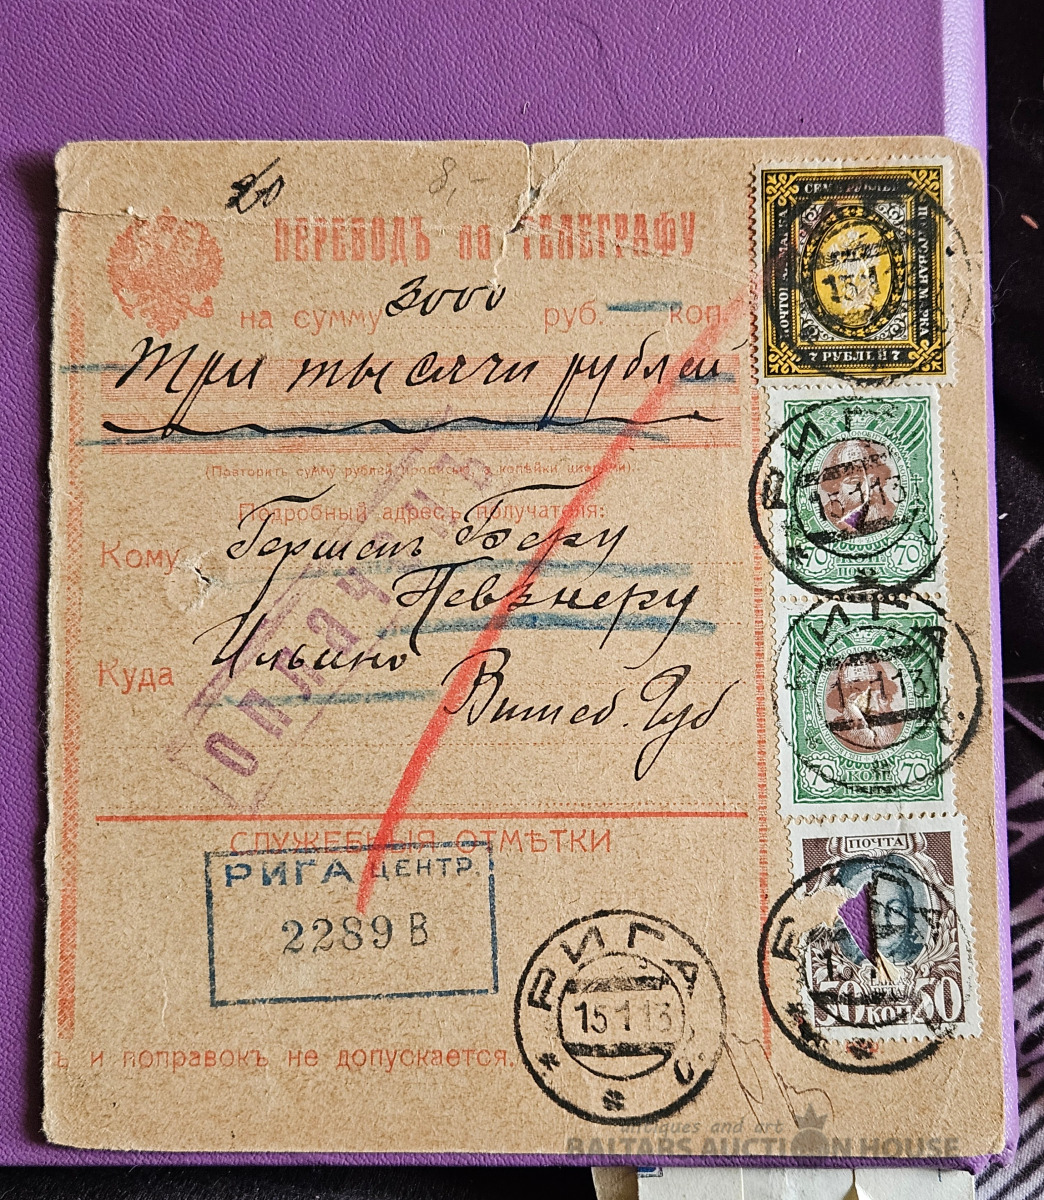 8,-
ПЕРЕВОДЪ ПО ТЕЛЕГРАФУ
на сумму 3000 руб. — коп.
Три тысячи рублей
(Повторить сумму рублей прописью, а копейки цифрами).
Подробный адресъ получателя:
Кому Гершенъ Беру
Невзнеру
Куда Ильино
Витеб. Губ
ОПЛАЧ
СЛУЖЕБНЫЯ ОТМѢТКИ
РИГА ЦЕНТР.
2289 В
РИГА
15 1 13
ъ и поправокъ не допускается.
СЕМЬ РУБЛЕЙ
ПОЧТОВАЯ МАРКА
7 РУБЛЕЙ 7
15 1
РИГА
15 1 13
70 КОП 70
РИГА
1 13
70 КОП 70
ПОЧТА
50 КОП 50
antiques and art
BALTARS AUCTION HOUSE